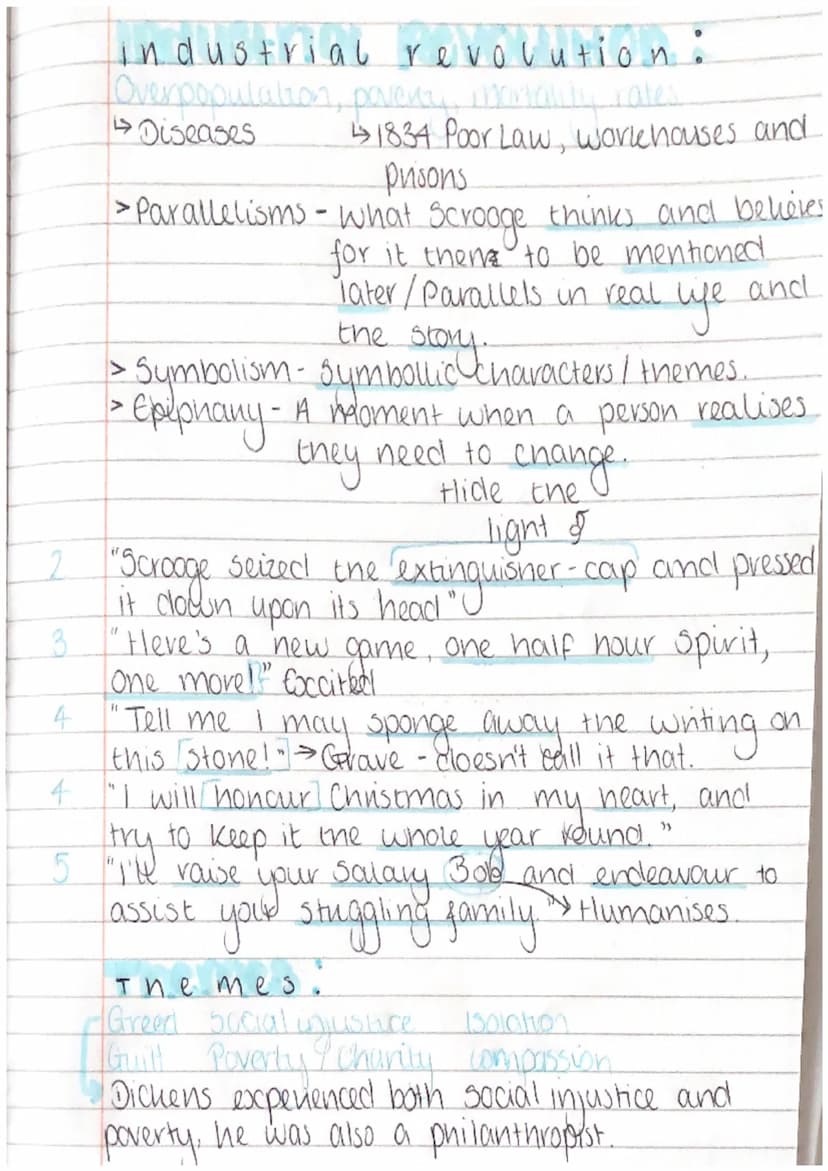 industrial revolution:
Overpopulation, poverty, mortality rates
↳ Diseases ↳ 1834 Poor Law, workhouses and
prisons
> Parallelisms - What Scrooge thinks and believes
for it then to be mentioned
later/Parallels in real life and
the story.
> Symbolism - Symbollic characters / themes.
> Epiphany - A moment when a person realises
they need to change.
Hide the
light
2 "Scrooge seized the extinguisher-cap and pressed
it down upon its head"
3 "Here's a new game, one half hour Spirit,
one more!" Excited
4 "Tell me I may sponge away the writing on
this stone!" → Grave - doesn't call it that.
4 "I will honour Christmas in my heart, and
try to keep it the whole year round."
5 "I'll raise your salary Bob and endeavour to
assist your stuggling family" → Humanises.
Themes:
Greed Social injustice Isolation
Guilt Poverty & Charity compassion
Dickens experienced both social injustice and
poverty, he was also a philanthropist.